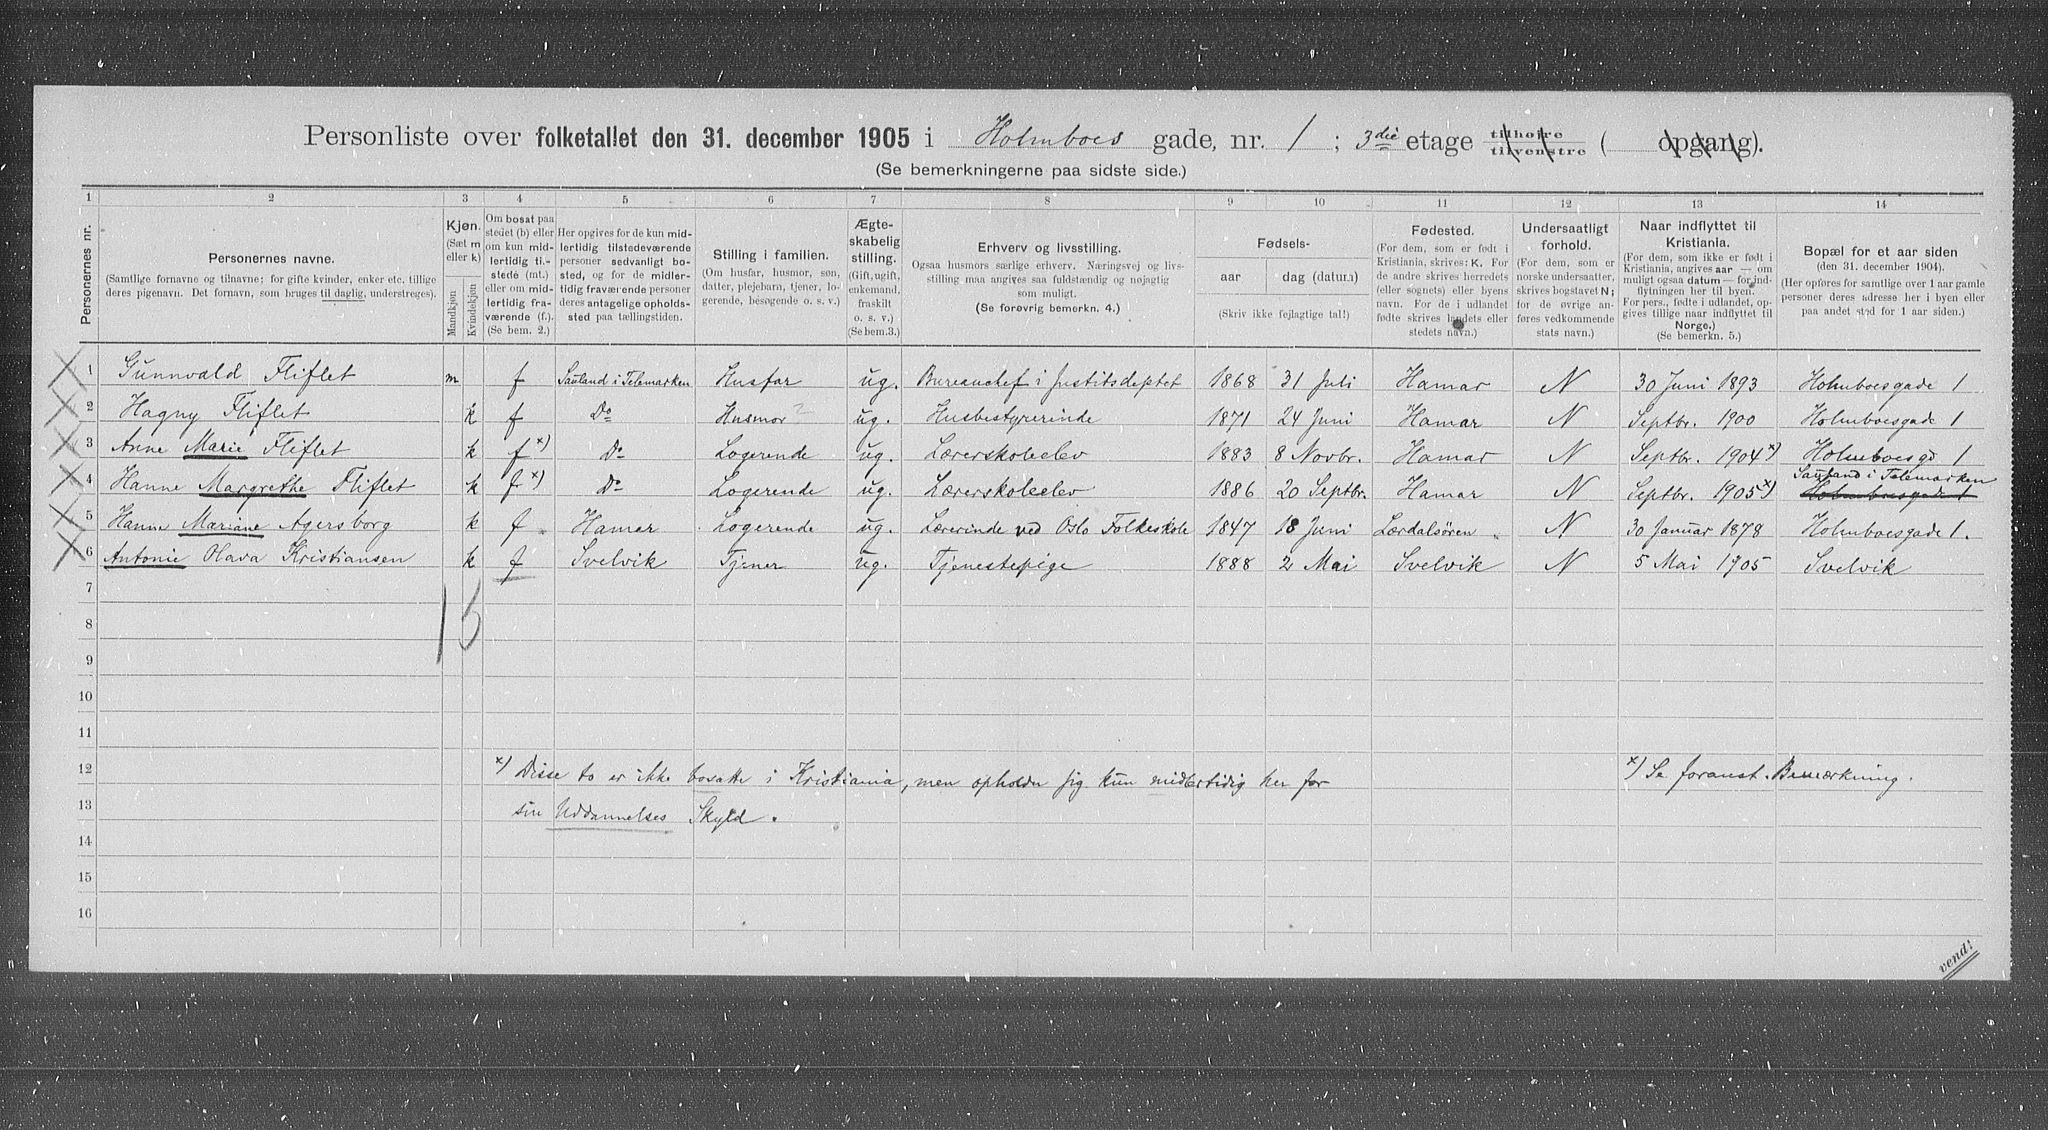 Personliste over folketallet den 31. december 1905 i Holmboes gade, nr. 1 ; 3die etage tilhøire tilvenstre ( opgang).
(Se bemerkningerne paa sidste side.)
1 2 3 4 5 6 7 8 9 10 11 12 13 14
Personernes nr.
Personernes navne.
(Samtlige fornavne og tilnavne; for gifte kvinder, enker etc. tillige
deres pigenavn. Det fornavn, som bruges til daglig, understreges).
Kjøn.
(Sæt m
eller k)
Mandkjøn
Kvindekjøn
Om bosat paa
stedet (b) eller
om kun mid-
lertidig til-
stede (mt.)
eller om mid-
lertidig fra-
værende (f.)
(Se bem. 2.)
Her opgives for de kun mid-
lertidig tilstedeværende
personer sedvanligt bo-
sted, og for de midler-
tidig fraværende personer
deres antagelige opholds-
sted paa tællingstiden.
Stilling i familien.
(Om husfar, husmor, søn,
datter, plejebarn, tjener, lo-
gerende, besøgende o. s. v.)
Ægte-
skabelig
stilling.
(Gift, ugift,
enkemand,
fraskilt
o. s. v.)
(Se bem.3.)
Erhverv og livsstilling.
Ogsaa husmors særlige erhverv. Næringsvej og livs-
stilling maa angives saa fuldstændig og nøjagtig
som muligt.
(Se forøvrig bemerkn. 4.)
Fødsels-
aar dag (datum)
(Skriv ikke fejlagtige tal!)
Fødested.
(For dem, som er født i
Kristiania, skrives: K. For
de andre skrives herredets
(eller sognets) eller byens
navn. For de i udlandet
fødte skrives landets eller
stedets navn.)
Undersaatligt
forhold.
(For dem, som er
norske undersaatter,
skrives bogstavet N;
for de øvrige an-
føres vedkommende
stats navn.)
Naar indflyttet til
Kristiania.
(For dem, som ikke er født i
Kristiania, angives aar — om
muligt ogsaa datum — for ind-
flytningen her til byen.
For pers., fødte i udlandet, op-
gives tillige naar indflyttet til
Norge.)
(Se bemerkn. 5.)
Bopæl for et aar siden
(den 31. december 1904).
(Her opføres for samtlige over 1 aar gamle
personer deres adresse her i byen eller
paa andet sted for 1 aar siden.)
1 Gunnvald Fliflet m f Sauland i Telemarken Husfar ug. Bureauchef i Justitsdeptet 1868 31 Juli Hamar N 30 Juni 1893 Holmboesgade 1
2 Hagny Fliflet k f Do Husmor ? ug. Husbestyrerinde 1871 24 Juni Hamar N Septbr. 1900 Holmboesgade 1
3 Anne Marie Fliflet k f x) Do Logerende ug. Lærerskoleelev 1883 8 Novbr. Hamar N Septbr. 1904 x) Holmboesgd 1
4 Hanne Margrethe Fliflet k f x) Do Logerende ug. Lærerskoleelev 1886 20 Septbr. Hamar N Septbr. 1905 x) Sauland i Telemarken Holmboesgade 1
5 Hanne Mariane Agersborg k f Hamar Logerende ug. Lærerinde ved Oslo Folkeskole 1847 18 Juni Lærdalsören N 30 Januar 1878 Holmboesgade 1.
6 Antonie Olava Kristiansen k f Svelvik Tjener ug. Tjenestepige 1888 2 Mai Svelvik N 5 Mai 1905 Svelvik
7
1 5
8
9
10
11
12 x) Disse to er ikke bosatte i Kristiania, men opholder sig kun midlertidig her for x) Se foranst. Bemærkning.
13 sin Uddannelses Skyld.
14
15
16
vend!